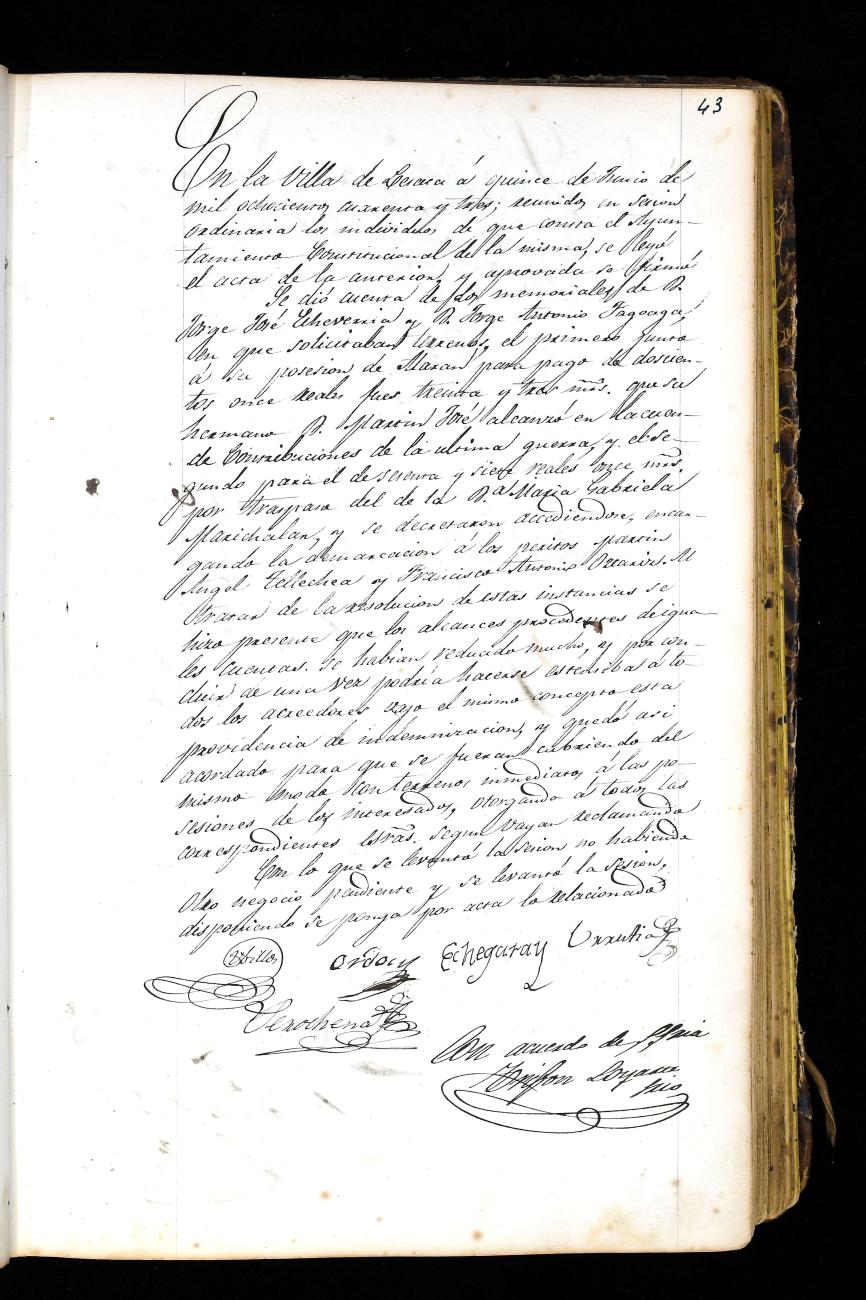 43
En la Villa de Lesaca á quince de Junio de
mil ochocientos cuarenta y tres; reunidos en sesion
ordinaria los individuos de que consta el Ayun-
tamiento Constitucional de la misma, se leyó
el acta de la anterior, y aprovada se firmó
Se dió cuenta de los memoriales de D.
Jorge José Echeverria y D. Jorge Antonio Tagoaga,
en que solicitaban terrenos, el primero junto
á su posesion de Maxan para pago de doscien-
tos once reales fues treinta y tres mrs. que su
hermano D. Martin José alcanzó en la cuen-
de Contribuciones de la ultima guerra, y el se-
gundo para el de sesenta y siete reales once mrs.
por traspaso del de la D.a Maria Gabriela
Marichalar, y se decretaron accediendose, encar-
gando la demarcacion á los peritos Martin
Angel Tellechea y Francisco Antonio Ocariz. Al
tratar de la resolucion de estas instancias se
hizo presente que los alcances procedentes de igua-
les cuentas. se habian reducido mucho, y por con-
cluir de una vez podria hacerse estensiba á to-
dos los acreedores vajo el mismo concepto esta
providencia de indemnizacion, y quedó asi
acordado para que se fueran cubriendo del
mismo modo con terrenos inmediatos á las po-
sesiones de los interesados, otorgando á todos las
correspondientes estras. segun vayan reclamando
Con lo que se levantó la sesion no habiendo
otro negocio pendiente y se levantó la sesion,
disponiendo se ponga por acta lo relacionado
Ordoqui Echegaray Urrutia
Terochena
Con acuerdo de SSria
Srio